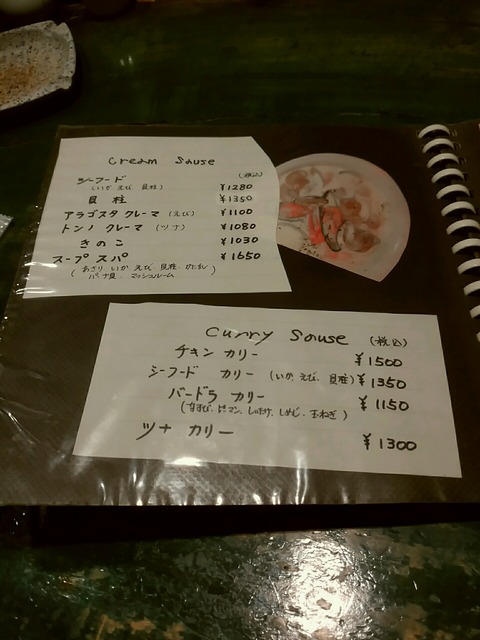 Cream Sause
(税込)
シーフード ¥1280
(いか、えび、貝柱)
貝柱 ¥1350
アラゴスタ クレーマ (えび) ¥1100
トンノ クレーマ (ツナ) ¥1080
きのこ ¥1030
スープ スパ ¥1650
(あさり、いか、えび、貝柱、
マッシュルーム)
Curry Sause (税込)
チキン カリー ¥1500
シーフード カリー (いか、えび、貝柱) ¥1350
バードラ カリー ¥1150
(なすび、ピーマン、しいたけ、しめじ、玉ねぎ)
ツナ カリー ¥1300